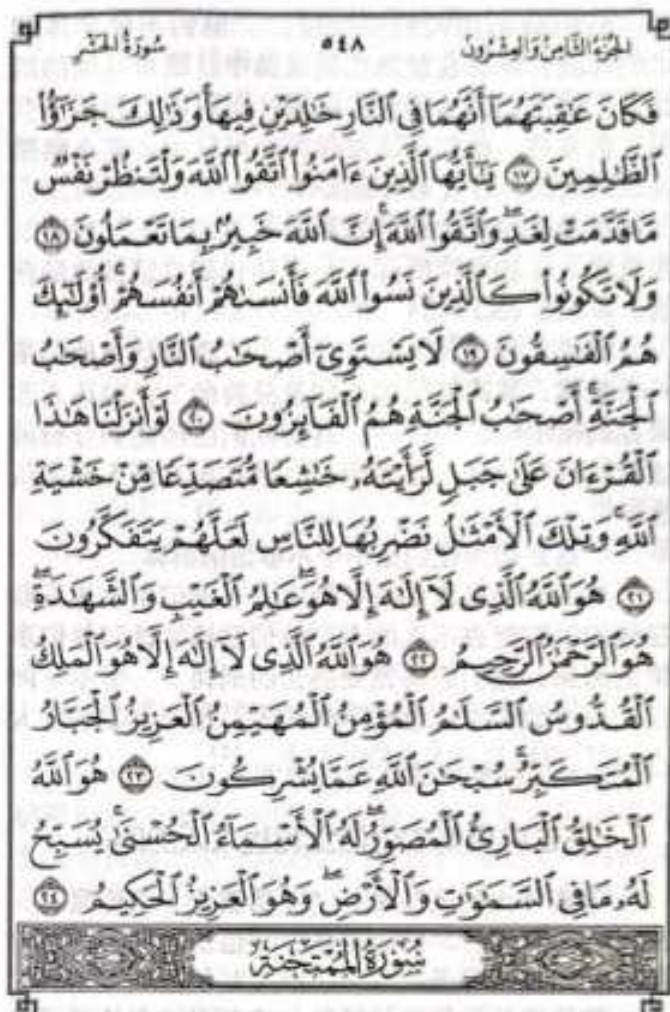 الجزء الثامن والعشرون ٥٤٨ سورة الحشر
فَكَانَ عَٰقِبَتَهُمَآ أَنَّهُمَا فِى ٱلنَّارِ خَٰلِدَيْنِ فِيهَا ۚ وَذَٰلِكَ جَزَٰٓؤُا۟
ٱلظَّٰلِمِينَ ١٧ يَٰٓأَيُّهَا ٱلَّذِينَ ءَامَنُوا۟ ٱتَّقُوا۟ ٱللَّهَ وَلْتَنظُرْ نَفْسٌ
مَّا قَدَّمَتْ لِغَدٍ ۖ وَٱتَّقُوا۟ ٱللَّهَ ۚ إِنَّ ٱللَّهَ خَبِيرٌۢ بِمَا تَعْمَلُونَ ١٨
وَلَا تَكُونُوا۟ كَٱلَّذِينَ نَسُوا۟ ٱللَّهَ فَأَنسَىٰهُمْ أَنفُسَهُمْ ۚ أُو۟لَٰٓئِكَ
هُمُ ٱلْفَٰسِقُونَ ١٩ لَا يَسْتَوِىٓ أَصْحَٰبُ ٱلنَّارِ وَأَصْحَٰبُ
ٱلْجَنَّةِ ۚ أَصْحَٰبُ ٱلْجَنَّةِ هُمُ ٱلْفَآئِزُونَ ٢٠ لَوْ أَنزَلْنَا هَٰذَا
ٱلْقُرْءَانَ عَلَىٰ جَبَلٍ لَّرَأَيْتَهُۥ خَٰشِعًا مُّتَصَدِّعًا مِّنْ خَشْيَةِ
ٱللَّهِ ۚ وَتِلْكَ ٱلْأَمْثَٰلُ نَضْرِبُهَا لِلنَّاسِ لَعَلَّهُمْ يَتَفَكَّرُونَ
٢١ هُوَ ٱللَّهُ ٱلَّذِى لَآ إِلَٰهَ إِلَّا هُوَ ۖ عَٰلِمُ ٱلْغَيْبِ وَٱلشَّهَٰدَةِ ۖ
هُوَ ٱلرَّحْمَٰنُ ٱلرَّحِيمُ ٢٢ هُوَ ٱللَّهُ ٱلَّذِى لَآ إِلَٰهَ إِلَّا هُوَ ٱلْمَلِكُ
ٱلْقُدُّوسُ ٱلسَّلَٰمُ ٱلْمُؤْمِنُ ٱلْمُهَيْمِنُ ٱلْعَزِيزُ ٱلْجَبَّارُ
ٱلْمُتَكَبِّرُ ۚ سُبْحَٰنَ ٱللَّهِ عَمَّا يُشْرِكُونَ ٢٣ هُوَ ٱللَّهُ
ٱلْخَٰلِقُ ٱلْبَارِئُ ٱلْمُصَوِّرُ ۖ لَهُ ٱلْأَسْمَآءُ ٱلْحُسْنَىٰ ۚ يُسَبِّحُ
لَهُۥ مَا فِى ٱلسَّمَٰوَٰتِ وَٱلْأَرْضِ ۖ وَهُوَ ٱلْعَزِيزُ ٱلْحَكِيمُ ٢٤
سُورَةُ المُمْتَحنَة